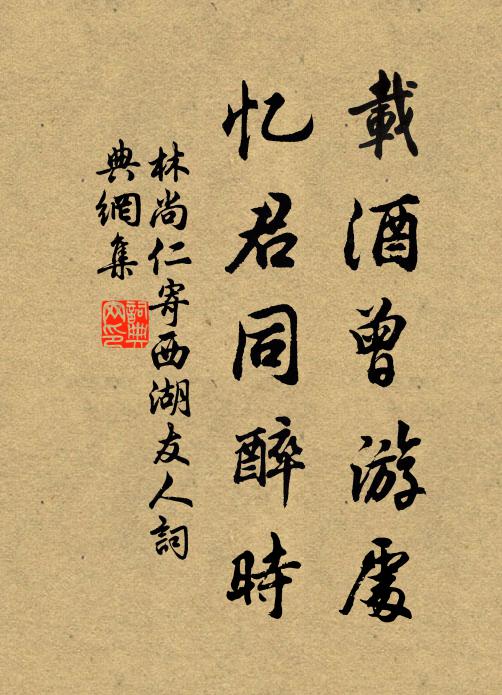 載酒曾游處
忆君同醉時
林尚仁寄西湖友人詞
典網集
詞典網印